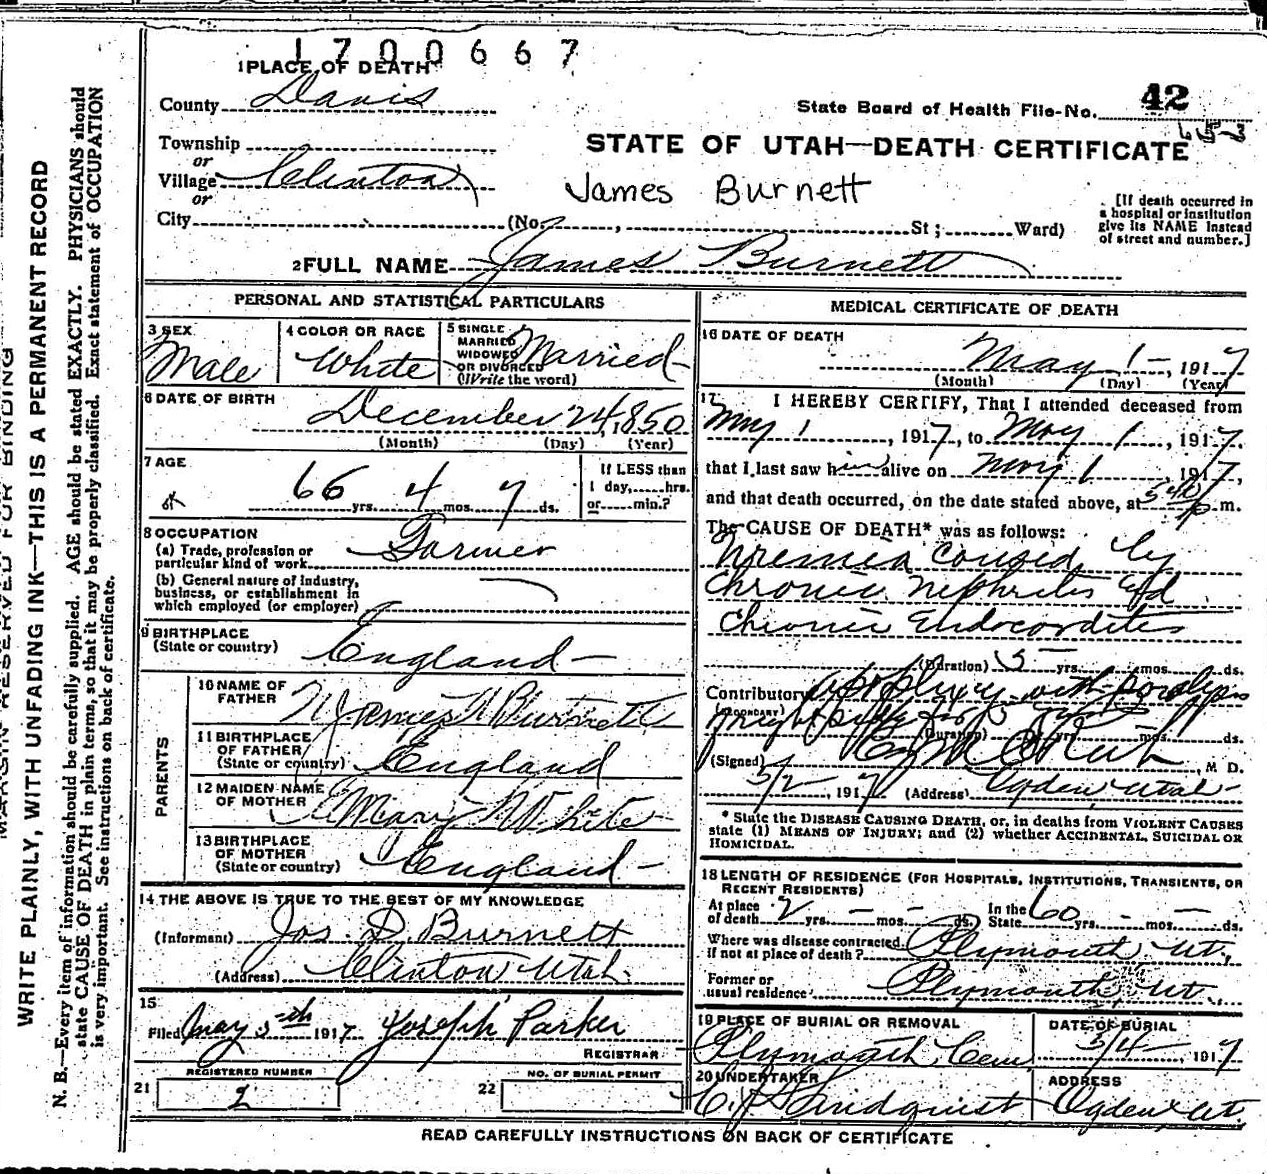 1700667
1 PLACE OF DEATH
County Davis
State Board of Health File-No. 42
Township
or
Village Clinton
or
City (No. , St ; Ward)
STATE OF UTAH—DEATH CERTIFICATE
James Burnett
[If death occurred in
a hospital or institution
give its NAME instead
of street and number.]
2 FULL NAME James Burnett
PERSONAL AND STATISTICAL PARTICULARS
3 SEX
Male
4 COLOR OR RACE
White
5 SINGLE
MARRIED
WIDOWED
OR DIVORCED
(Write the word)
Married
6 DATE OF BIRTH
December 24, 1850
(Month) (Day) (Year)
7 AGE
66 yrs. 4 mos. 7 ds.
If LESS than
1 day, hrs.
or min.?
8 OCCUPATION
(a) Trade, profession or
particular kind of work Farmer
(b) General nature of industry,
business, or establishment in
which employed (or employer)
9 BIRTHPLACE
(State or country) England
PARENTS
10 NAME OF
FATHER James Burnett
11 BIRTHPLACE
OF FATHER
(State or country) England
12 MAIDEN NAME
OF MOTHER Mary White
13 BIRTHPLACE
OF MOTHER
(State or country) England
14 THE ABOVE IS TRUE TO THE BEST OF MY KNOWLEDGE
(Informant) Jos. D. Burnett
(Address) Clinton Utah
15
Filed May 5th 1917 Joseph Parker
REGISTRAR
REGISTERED NUMBER
21 2
22 NO. OF BURIAL PERMIT
MEDICAL CERTIFICATE OF DEATH
16 DATE OF DEATH
May 1 — , 1917
(Month) (Day) (Year)
17 I HEREBY CERTIFY, That I attended deceased from
May 1 , 1917, to May 1 , 1917.
that I last saw him alive on May 1 1917,
and that death occurred, on the date stated above, at p m.
The CAUSE OF DEATH* was as follows:
Uremia Caused by
Chronic Nephritis and
Chronic Endocarditis
(Duration) 5 yrs. mos. ds.
Contributory Apoplexy with paralysis
(SECONDARY) right side for
(Duration) yrs. mos. ds.
(Signed) , M D.
5/2 , 1917 (Address) Ogden Utah
* State the DISEASE CAUSING DEATH, or, in deaths from VIOLENT CAUSES
state (1) MEANS OF INJURY; and (2) whether ACCIDENTAL, SUICIDAL OR
HOMICIDAL.
18 LENGTH OF RESIDENCE (FOR HOSPITALS, INSTITUTIONS, TRANSIENTS, OR
RECENT RESIDENTS)
At place
of death 2 yrs. — mos. — ds. In the State 60 yrs. - mos. — ds.
Where was disease contracted
if not at place of death? Plymouth Ut.
Former or
usual residence Plymouth Ut.
19 PLACE OF BURIAL OR REMOVAL
Plymouth Cem
DATE OF BURIAL
5/4 — , 1917
20 UNDERTAKER
Lindquist
ADDRESS
Ogden Ut.
READ CAREFULLY INSTRUCTIONS ON BACK OF CERTIFICATE
MARGIN RESERVED FOR BINDING
WRITE PLAINLY, WITH UNFADING INK—THIS IS A PERMANENT RECORD
N. B.—Every item of information should be carefully supplied. AGE should be stated EXACTLY. PHYSICIANS should
state CAUSE OF DEATH in plain terms, so that it may be properly classified. Exact statement of OCCUPATION
is very important. See instructions on back of certificate.